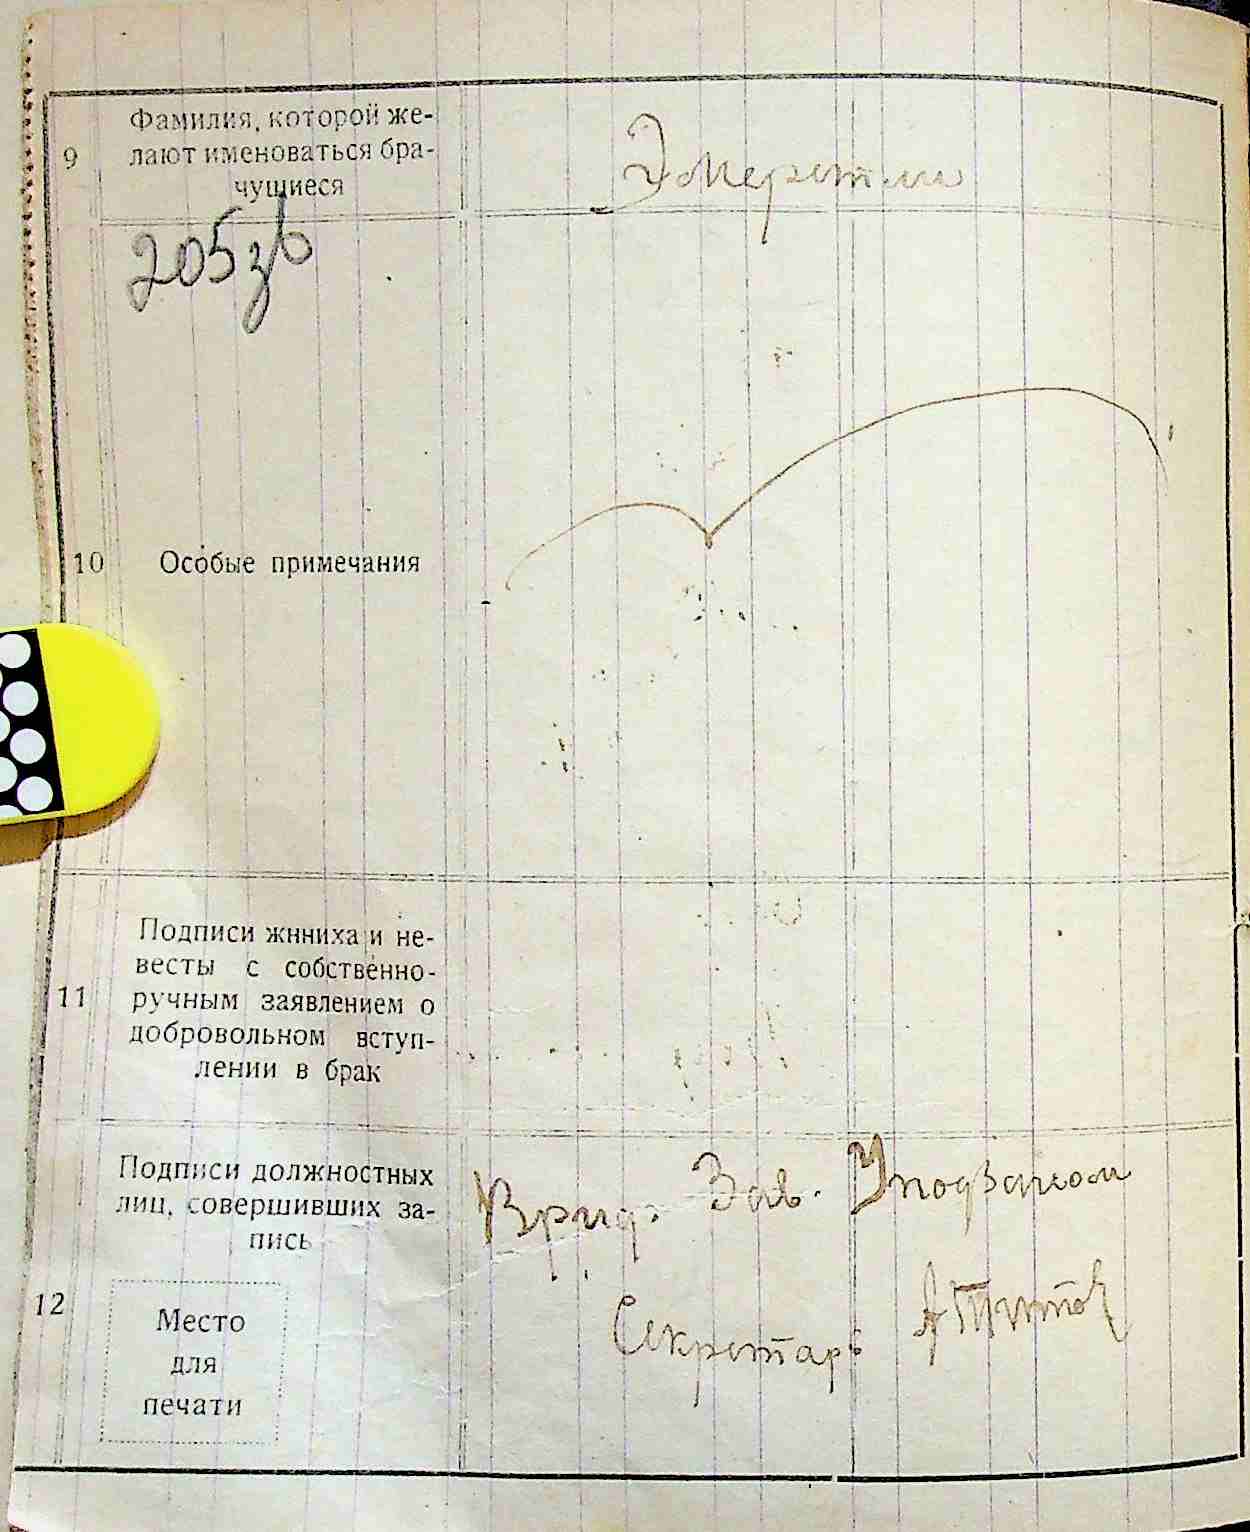 9
Фамилия, которой же-
лают именоваться бра-
чущиеся
205зв
10
Особые примечания
11
Подписи жнниха и не-
весты с собственно-
ручным заявлением о
добровольном вступ-
лении в брак
12
Подписи должностных
лиц, совершивших за-
пись
Врид. Зав.
Секретарь
А Титов
Место
для
печати